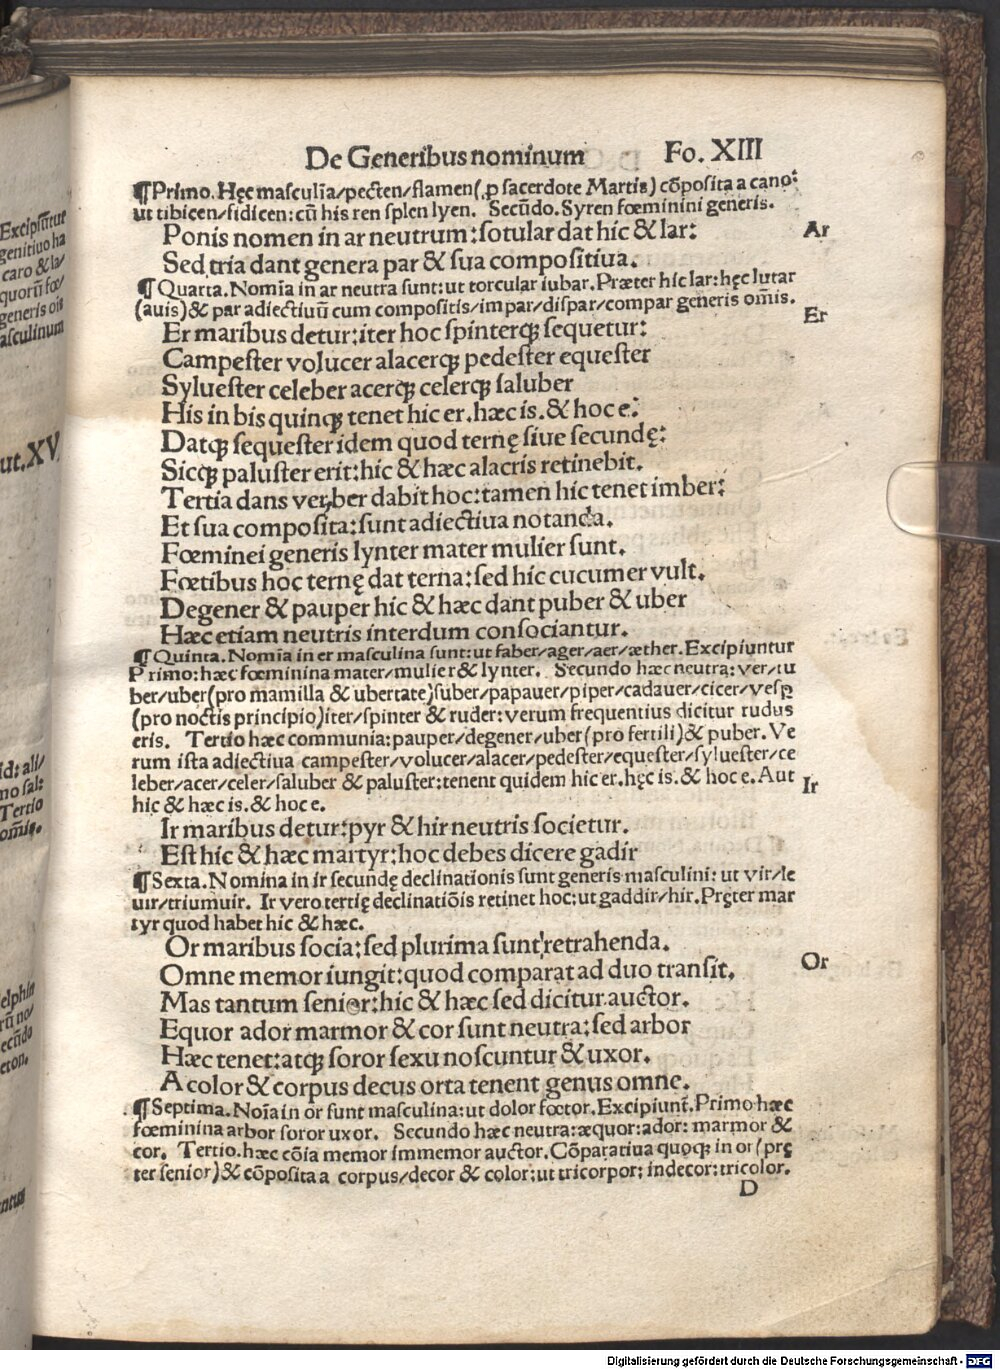 De Generibus nominum Fo. XIII
¶Primo. Hęc masculīa/pecten/flamen(ꝓ sacerdote Martis) cōposita a cano:
ut tibicen/fidicen: cū his ren splen lyen. Secūdo. Syren fœminini generis.
Ponis nomen in ar neutrum: sotular dat hic & lar:
Ar
Sed tria dant genera par & sua compositiua.
¶Quarta. Nomīa in ar neutra sunt: ut torcular iubar. Præter hic lar: hęc lutar
(auis) & par adiectiuū cum compositis/impar/dispar/compar generis om̄is.
Er
Er maribus detur: iter hoc spinterqꝫ sequetur:
Campester volucer alacerqꝫ pedester equester
Syluester celeber acerqꝫ celerqꝫ saluber
His in bis quinqꝫ tenet hic er. hæc is. & hoc e:
Datqꝫ sequester idem quod ternę siue secundę:
Sicqꝫ paluster erit: hic & hæc alacris retinebit.
Tertia dans ver, ber dabit hoc: tamen hic tenet imber:
Et sua composita: sunt adiectiua notanda.
Fœminei generis lynter mater mulier sunt.
Fœtibus hoc ternę dat terna: sed hic cucumer vult.
Degener & pauper hic & hæc dant puber & uber
Hæc etiam neutris interdum consociantur.
¶Quinta. Nomīa in er masculina sunt: ut faber/ager/aer/æther. Excipiuntur
Primo: hæc fœminina mater/mulier & lynter. Secundo hæc neutra: ver/tu
ber/uber(pro mamilla & ubertate)suber/papauer/piper/cadauer/cicer/vesꝑ
(pro noctis principio)iter/spinter & ruder: verum frequentius dicitur rudus
eris. Tertio hæc communia: pauper/degener/uber(pro fertili) & puber. Ve
rum ista adiectiua campester/volucer/alacer/pedester/equester/syluester/ce
leber/acer/celer/saluber & paluster: tenent quidem hic er. hęc is. & hoc e. Aut
Ir
hic & hæc is. & hoc e.
Ir maribus detur: pyr & hir neutris societur.
Est hic & hæc martyr: hoc debes dicere gadir
¶Sexta. Nomina in ir secundę declinationis sunt generis masculini: ut vir/le
uir/triumuir. Ir vero tertię declinatiōis retinet hoc: ut gaddir/hir. Pręter mar
tyr quod habet hic & hæc.
Or maribus socia: sed plurima sunt retrahenda.
Or
Omne memor iungit: quod comparat ad duo transit.
Mas tantum senior: hic & hæc sed dicitur auctor.
Equor ador marmor & cor sunt neutra: sed arbor
Hæc tenet: atqꝫ soror sexu noscuntur & uxor.
A color & corpus decus orta tenent genus omne.
¶Septima. Noīa in or sunt masculina: ut dolor fœtor. Excipiunt̄. Primo hæc
fœminina arbor soror uxor. Secundo hæc neutra: æquor: ador: marmor &
cor. Tertio. hæc cōia memor immemor auctor. Cōparatiua quoqꝫ in or (prę
ter senior) & cōposita a corpus/decor & color: ut tricorpor: indecor: tricolor.
D
Excipiūtur
genitiuo ha
caro & la/
quorū fœ/
generis oīs
asculinum
ut. XV
id: ali/
no sal:
Tertio
om̄is.
elphin
rū no/
ecūdo
eton.
Digitalisierung gefördert durch die Deutsche Forschungsgemeinschaft - DFG